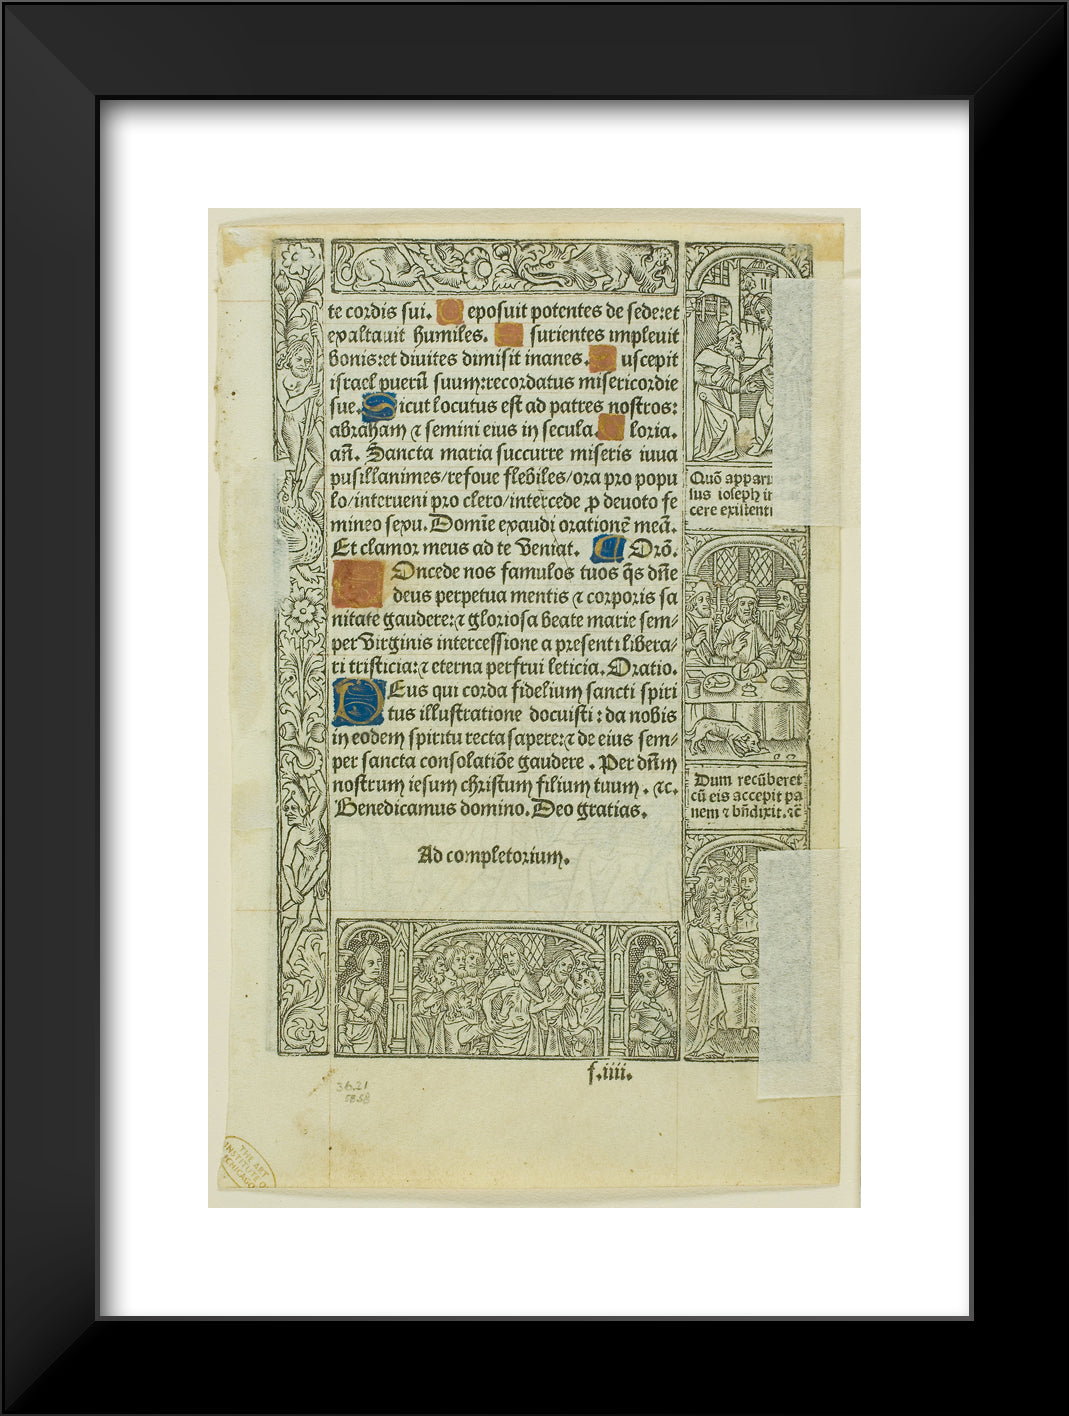 te cordis sui. D eposuit potentes de sede:et
exaltauit humiles. E surientes impleuit
bonis:et diuites dimisit inanes. S uscepit
israel puerū suum:recordatus misericordie
sue. S icut locutus est ad patres nostros:
abraham ⁊ semini eius in secula. G loria.
añ. Sancta maria succurre miseris iuua
pusillanimes/refoue flebiles/ora pro popu
lo/interueni pro clero/intercede ꝓ deuoto fe
mineo sexu. Domīe exaudi orationē meā.
Et clamor meus ad te veniat. C Orō.
Oncede nos famulos tuos q̄s dn̄e
deus perpetua mentis ⁊ corporis sa
nitate gaudere:⁊ gloriosa beate marie sem-
per virginis intercessione a presenti libera-
ri tristicia:⁊ eterna perfrui leticia. Oratio.
DEus qui corda fidelium sancti spiri
tus illustratione docuisti : da nobis
in eodem spiritu recta sapere:⁊ de eius sem-
per sancta consolatiōe gaudere . Per dn̄m
nostrum iesum christum filium tuum . ⁊c.
Benedicamus domino. Deo gratias.
Ad completorium.
Quō appari
sus ioseph in
cere existenti
Dum recūberet
cū eis accepit pa
nem ⁊ bn̄dixit.⁊c
f.iiii.
36.21
THE ART
INSTITUTE OF
CHICAGO